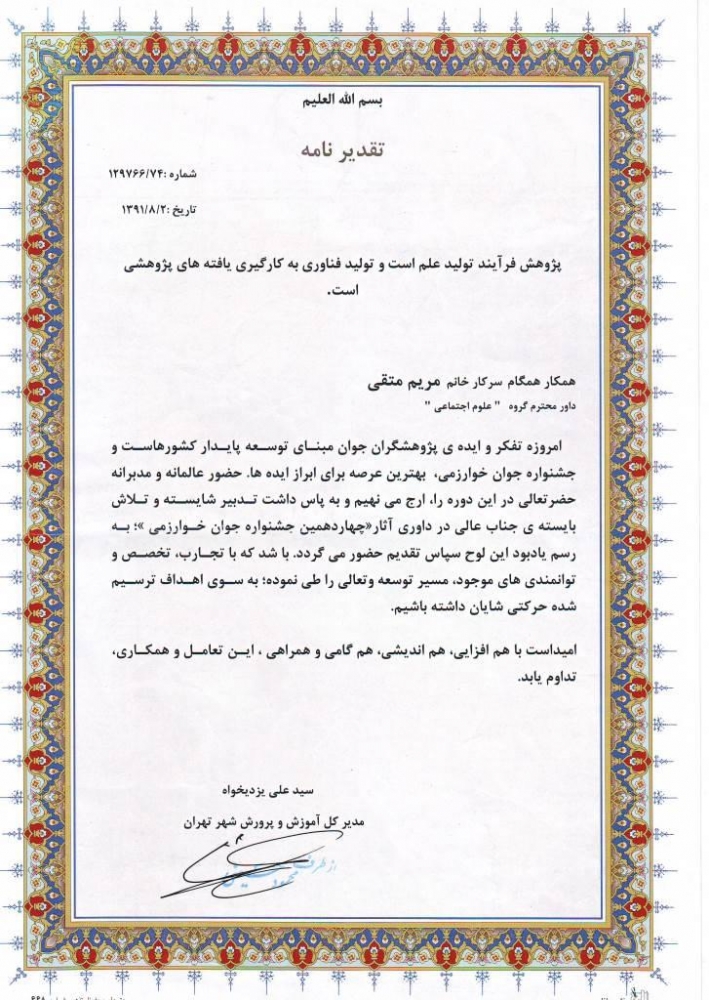 بسم الله العلیم
تقدیر نامه
شماره :۱۲۹۷۶۶/۷۴
تاریخ :۱۳۹۱/۸/۲
پژوهش فرآیند تولید علم است و تولید فناوری به کارگیری یافته های پژوهشی
است.
همکار همگام سرکار خانم مریم متقی
داور محترم گروه " علوم اجتماعی "
امروزه تفکر و ایده ی پژوهشگران جوان مبنـای توسـعه پایـدار کشورهاسـت و
جشنواره جوان خوارزمی، بهترین عرصه برای ابراز ایده ها. حضور عالمانه و مدبرانه
حضرتعالی در این دوره را، ارج می نهیم و به پاس داشت تـدبیر شایسـته و تـلاش
بایسته ی جناب عالی در داوری آثار«چهاردهمین جشنواره جوان خـوارزمی »؛ بـه
رسم یادبود این لوح سپاس تقدیم حضور می گردد. با شد که با تجـارب، تخصـص و
توانمندی های موجود، مسیر توسعه وتعالی را طی نموده؛ به سـوی اهـداف ترسـیم
شده حرکتی شایان داشته باشیم.
امیداست با هم افزایی، هم اندیشی، هم گامی و همراهی ، ایـن تعامـل و همکـاری،
تداوم یابد.
سید علی یزدیخواه
مدیر کل آموزش و پرورش شهر تهران
از طرف
محمود